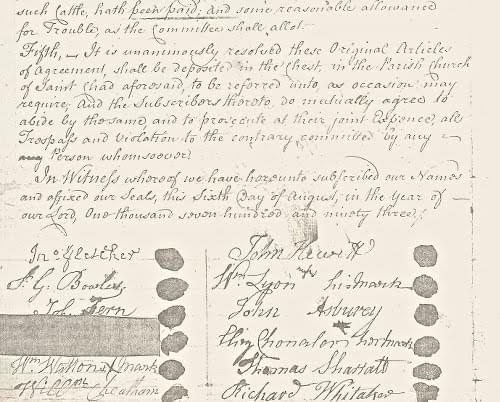 such Cattle, hath been paid; and some reasonable allowance
for Trouble, as the Committee shall allot.
Fifth, It is unanimously resolved these Original Articles
of Agreement, shall be deposited in the Chest, in the Parish Church
of Saint Chad aforesaid, to be referred unto, as occasion may
require; And the Subscribors thereto, do mutually agree to
abide by thesame, and to prosecute at their joint Expence, all
Trespass and violation to the contrary committed by any
any Person whomsoever.
In Witness whereof we have hereunto subscribed our Names
and affixed our Seals, this Sixth Day of August, in the Year of
our Lord, One thousand seven hundred and ninety three.
Jno Fletcher
John Hewitt
G. Bowles
Wm Lyon his mark
Fern
John Asburey
Eliz Chonceler hor mark
Wm Wattons mark
Thomas Sharratt
Willm Cheatham
Richard Whitaker